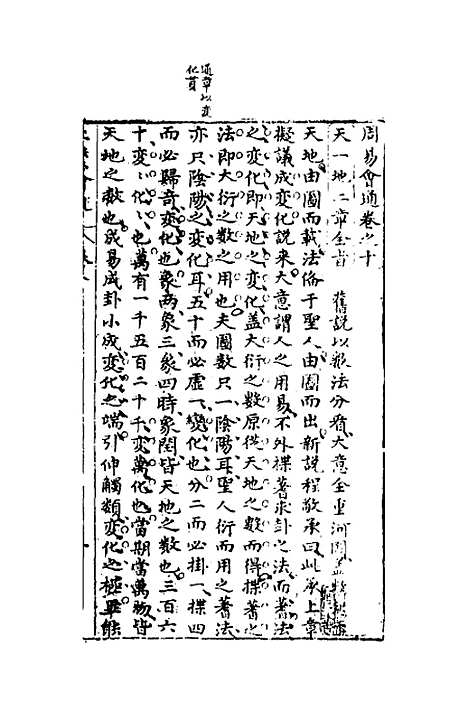 通章以变
化貫
周易會通卷之十
天一地二章全旨　舊說以數法分看大意全重河圖蓋數
天地由圖而載法俻于聖人由圖而出新說程敬承曰此承上章
擬議成变化說来大意謂人之用易不外揲蓍求卦之法而蓍法
之变化即天地之变化盖大衍之数原從天地之数而得揲蓍之
法即大衍之数之用也夫圖数只一陰陽耳聖人衍而用之蓍法
亦只陰陽之变化耳五十而必虚一变化也分二而必掛一揲四
而必歸奇变化也象两象三象四時象閏皆天地之数也三百六
十变化也萬有一千五百二十千变萬化也當期當萬物皆
天地之数也成易成卦小成变化之端引伸觸類变化之極畢能